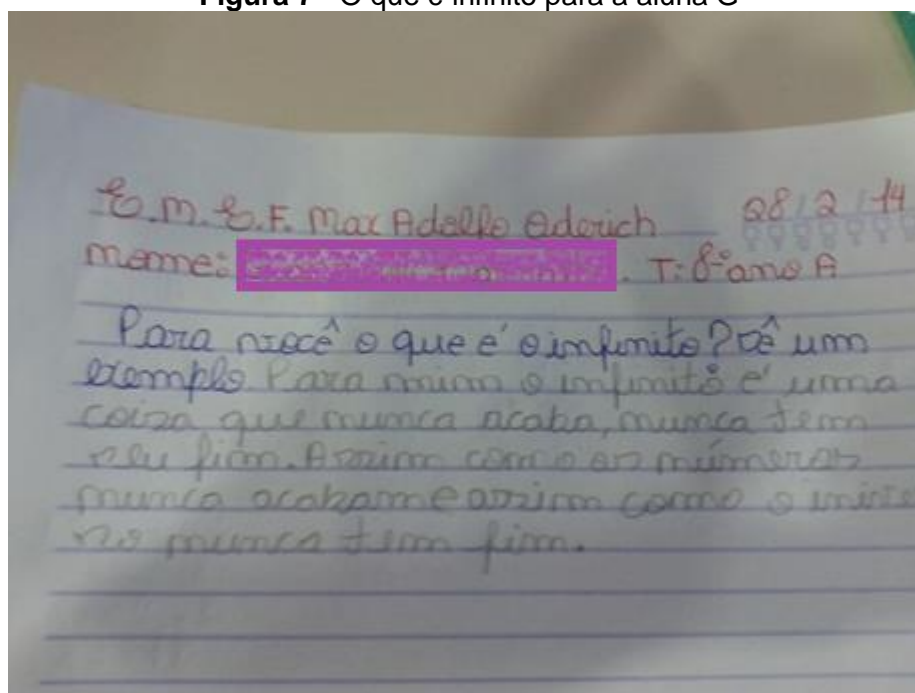 Figura 7 - O que é infinito para a aluna G
E.M.E.F. Max Adolfo Oderich 28/2/14
Nome: T: 8º ano A
Para você o que é o infinito? Dê um
exemplo Para mim o infinito é uma
coiza que nunca acaba, nunca tem
seu fim. Assim como os números
nunca acabam e assim como o unive
rso nunca tem fim.